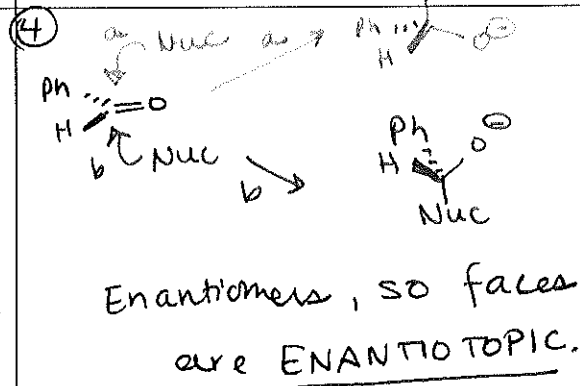 4
a Nuc a Ph
O ⊖
H
Ph
O
H
b Nuc
b
Ph
H
O ⊖
Nuc
Enantiomers, so faces
are ENANTIOTOPIC.